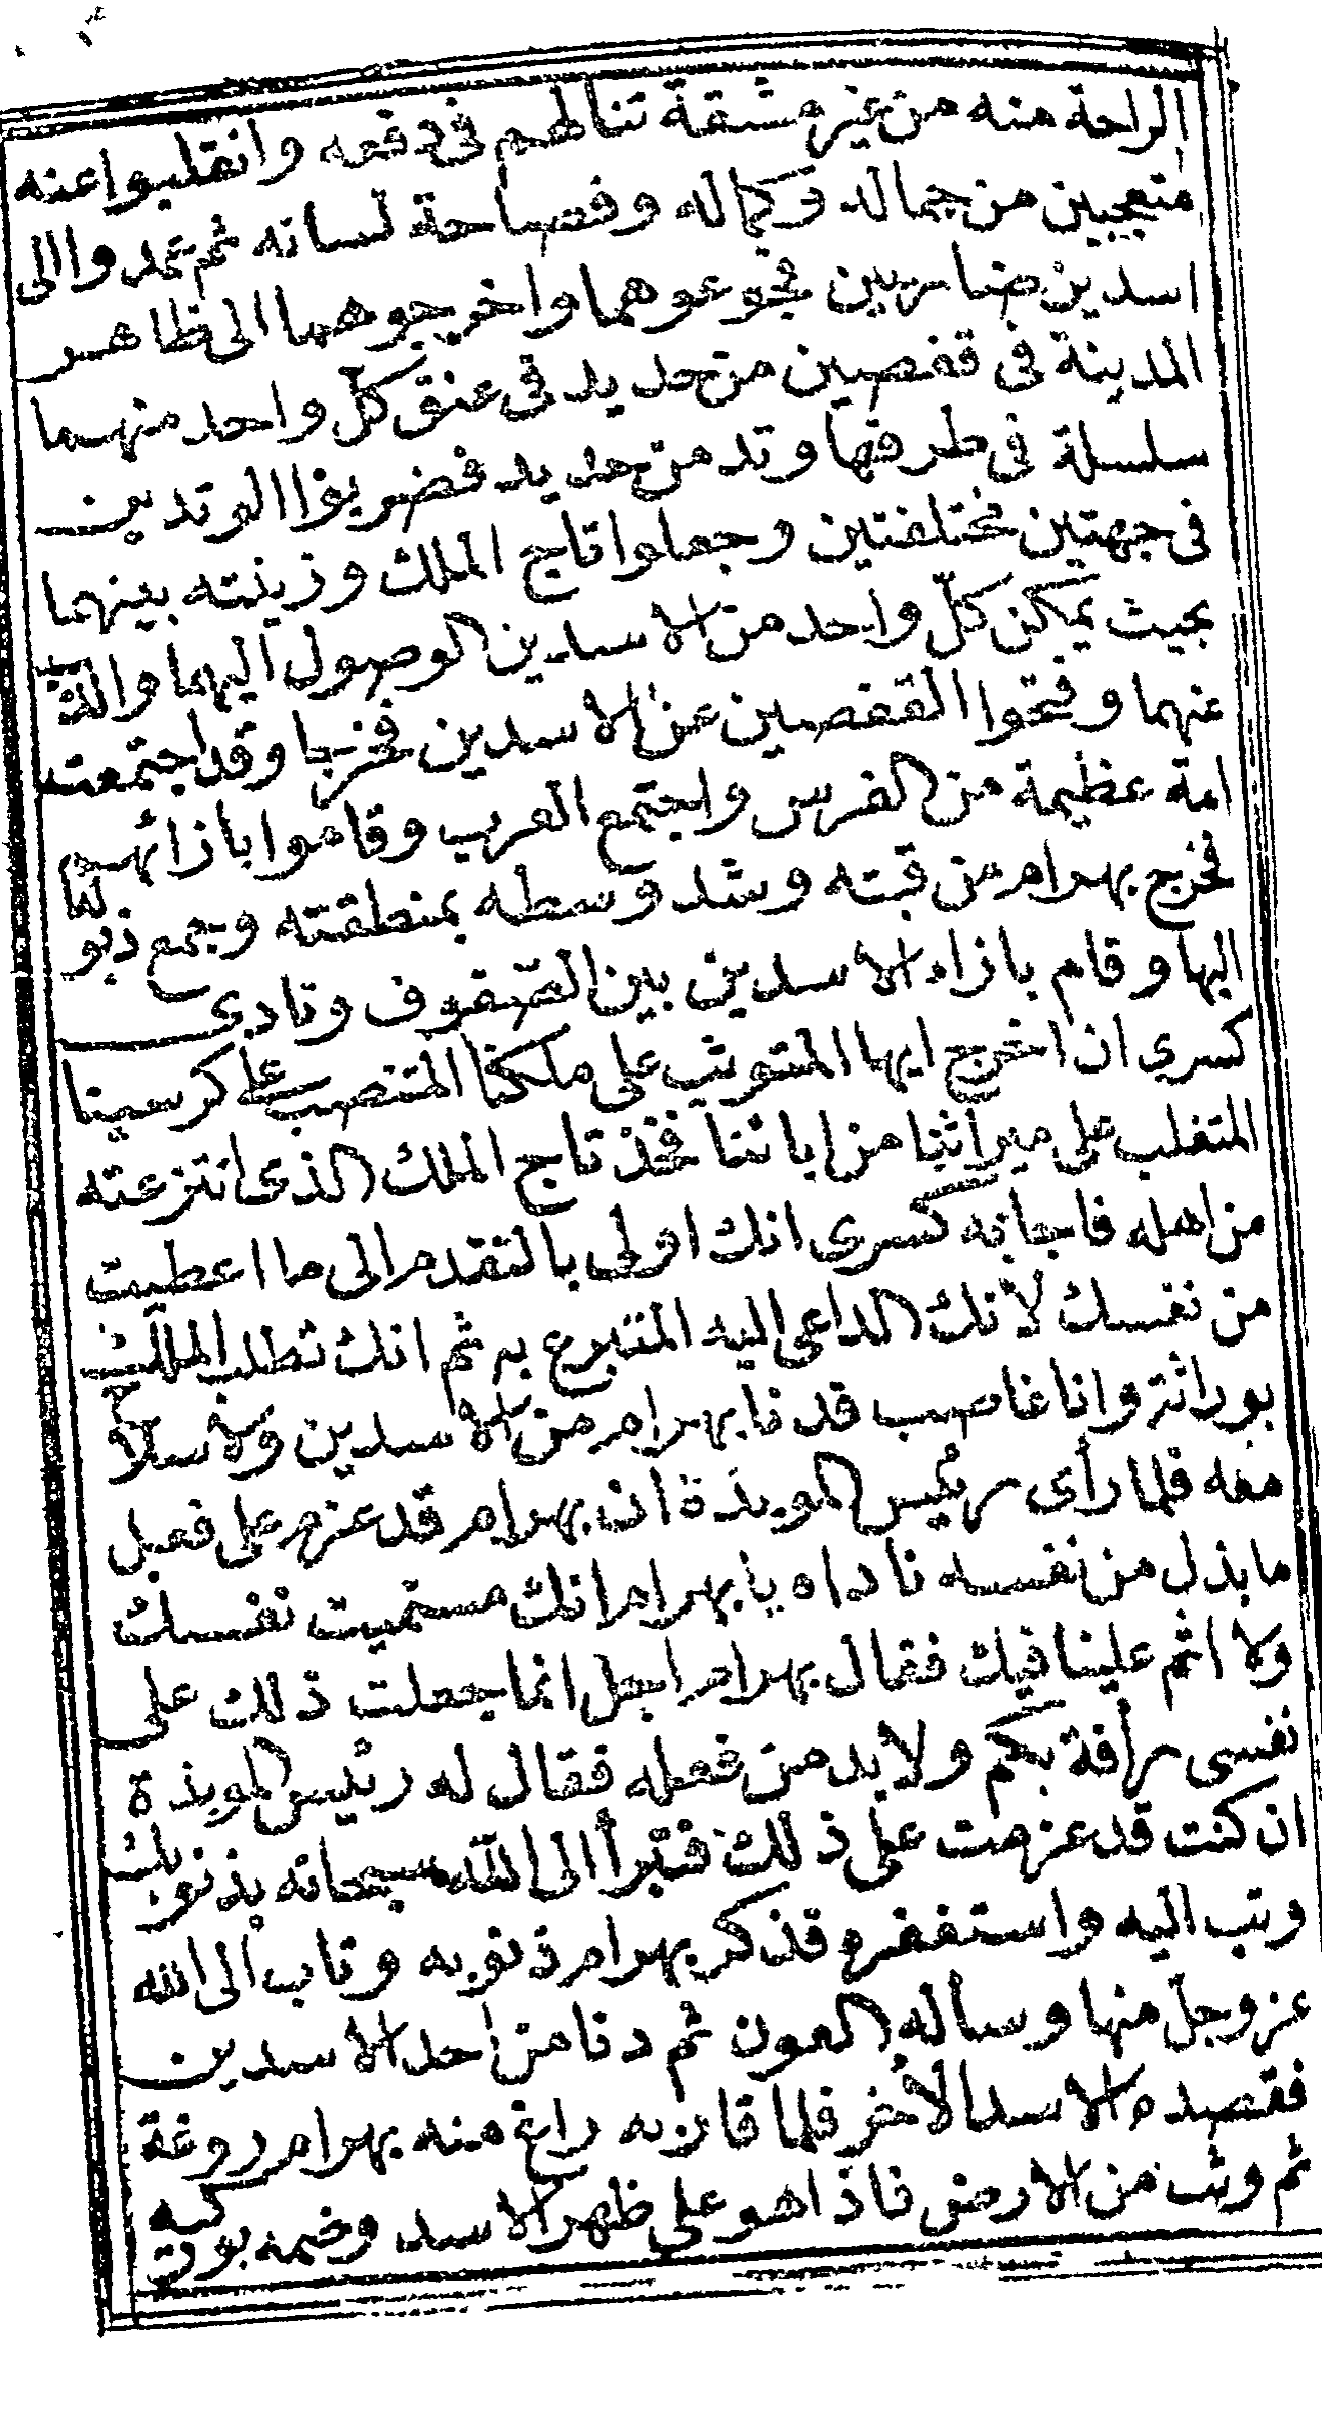 الراحة منه من غير مشقة تنالهم في دفعه وانقلبوا عنه
متعجبين من جماله وكماله وفصاحة لسانه ثم عمدوا الى
اسدين ضاريين فجوعوهما واخرجوهما الى ظاهر
المدينة في قفصين من حديد في عنق كل واحد منهما
سلسلة في طرفها وتد من حديد فضربوا الوتدين
في جهتين مختلفتين وجعلوا تاج الملك وزينته بينهما
بحيث يمكن كل واحد من الاسدين الوصول اليهما والذب
عنهما وفتحوا القفصين عن الاسدين فخرجا وقد اجتمعت
امة عظيمة من الفرس واجتمع العرب وقاموا بازائهم
فخرج بهرام من قبته وشد وسطه بمنطقته وجمع ذيولها
اليها وقام بازاء الاسدين بين الصفوف ونادى
كسرى ان اخرج ايها المتوثب على ملكنا المتنصب على كرسينا
المتغلب على ميراثنا من ابائنا فخذ تاج الملك الذي انتزعته
من اهله فاجابه كسرى انك اولى بالتقدم الى ما اعطيت
من نفسك لانك الداعي اليه المتبرع به ثم انك تطلب الملك
بوراثة وانا غاصب قدنا بهرام من الاسدين ولا سلاح
معه فلما رأى رئيس الموبذة ان بهرام قد عزم على فعل
ما بذل من نفسه ناداه يا بهرام انك مستميت نفسك
ولا اثم علينا فيك فقال بهرام اجل انما جعلت ذلك على
نفسي رأفة بكم ولا بد من فعله فقال له رئيس الموبذة
ان كنت قد عزمت على ذلك فتبرأ الى الله سبحانه بذنوبك
وتب اليه واستغفره فذكر بهرام ذنوبه وتاب الى الله
عز وجل منها وسأله العون ثم دنا من احد الاسدين
فقصده الاسد الاخر فلما قاربه راغ منه بهرام روغة
ثم وثب من الارض فاذا هو على ظهر الاسد وضمه بوركيه